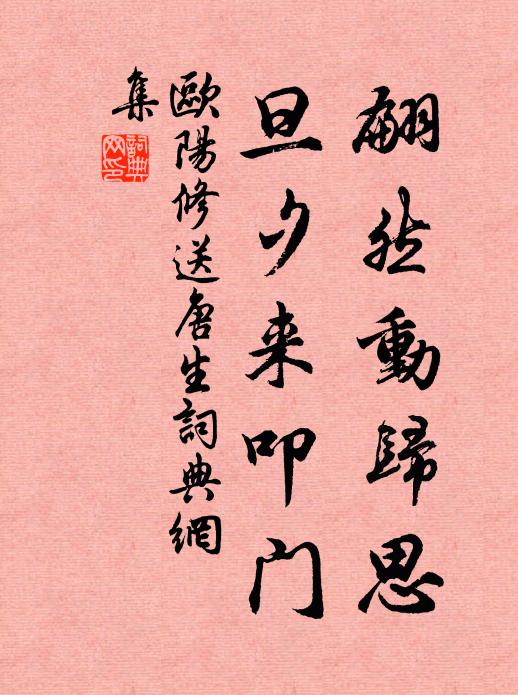 翩然動歸思
旦夕来叩门
歐陽修送唐生詞典網
集
詞典网印